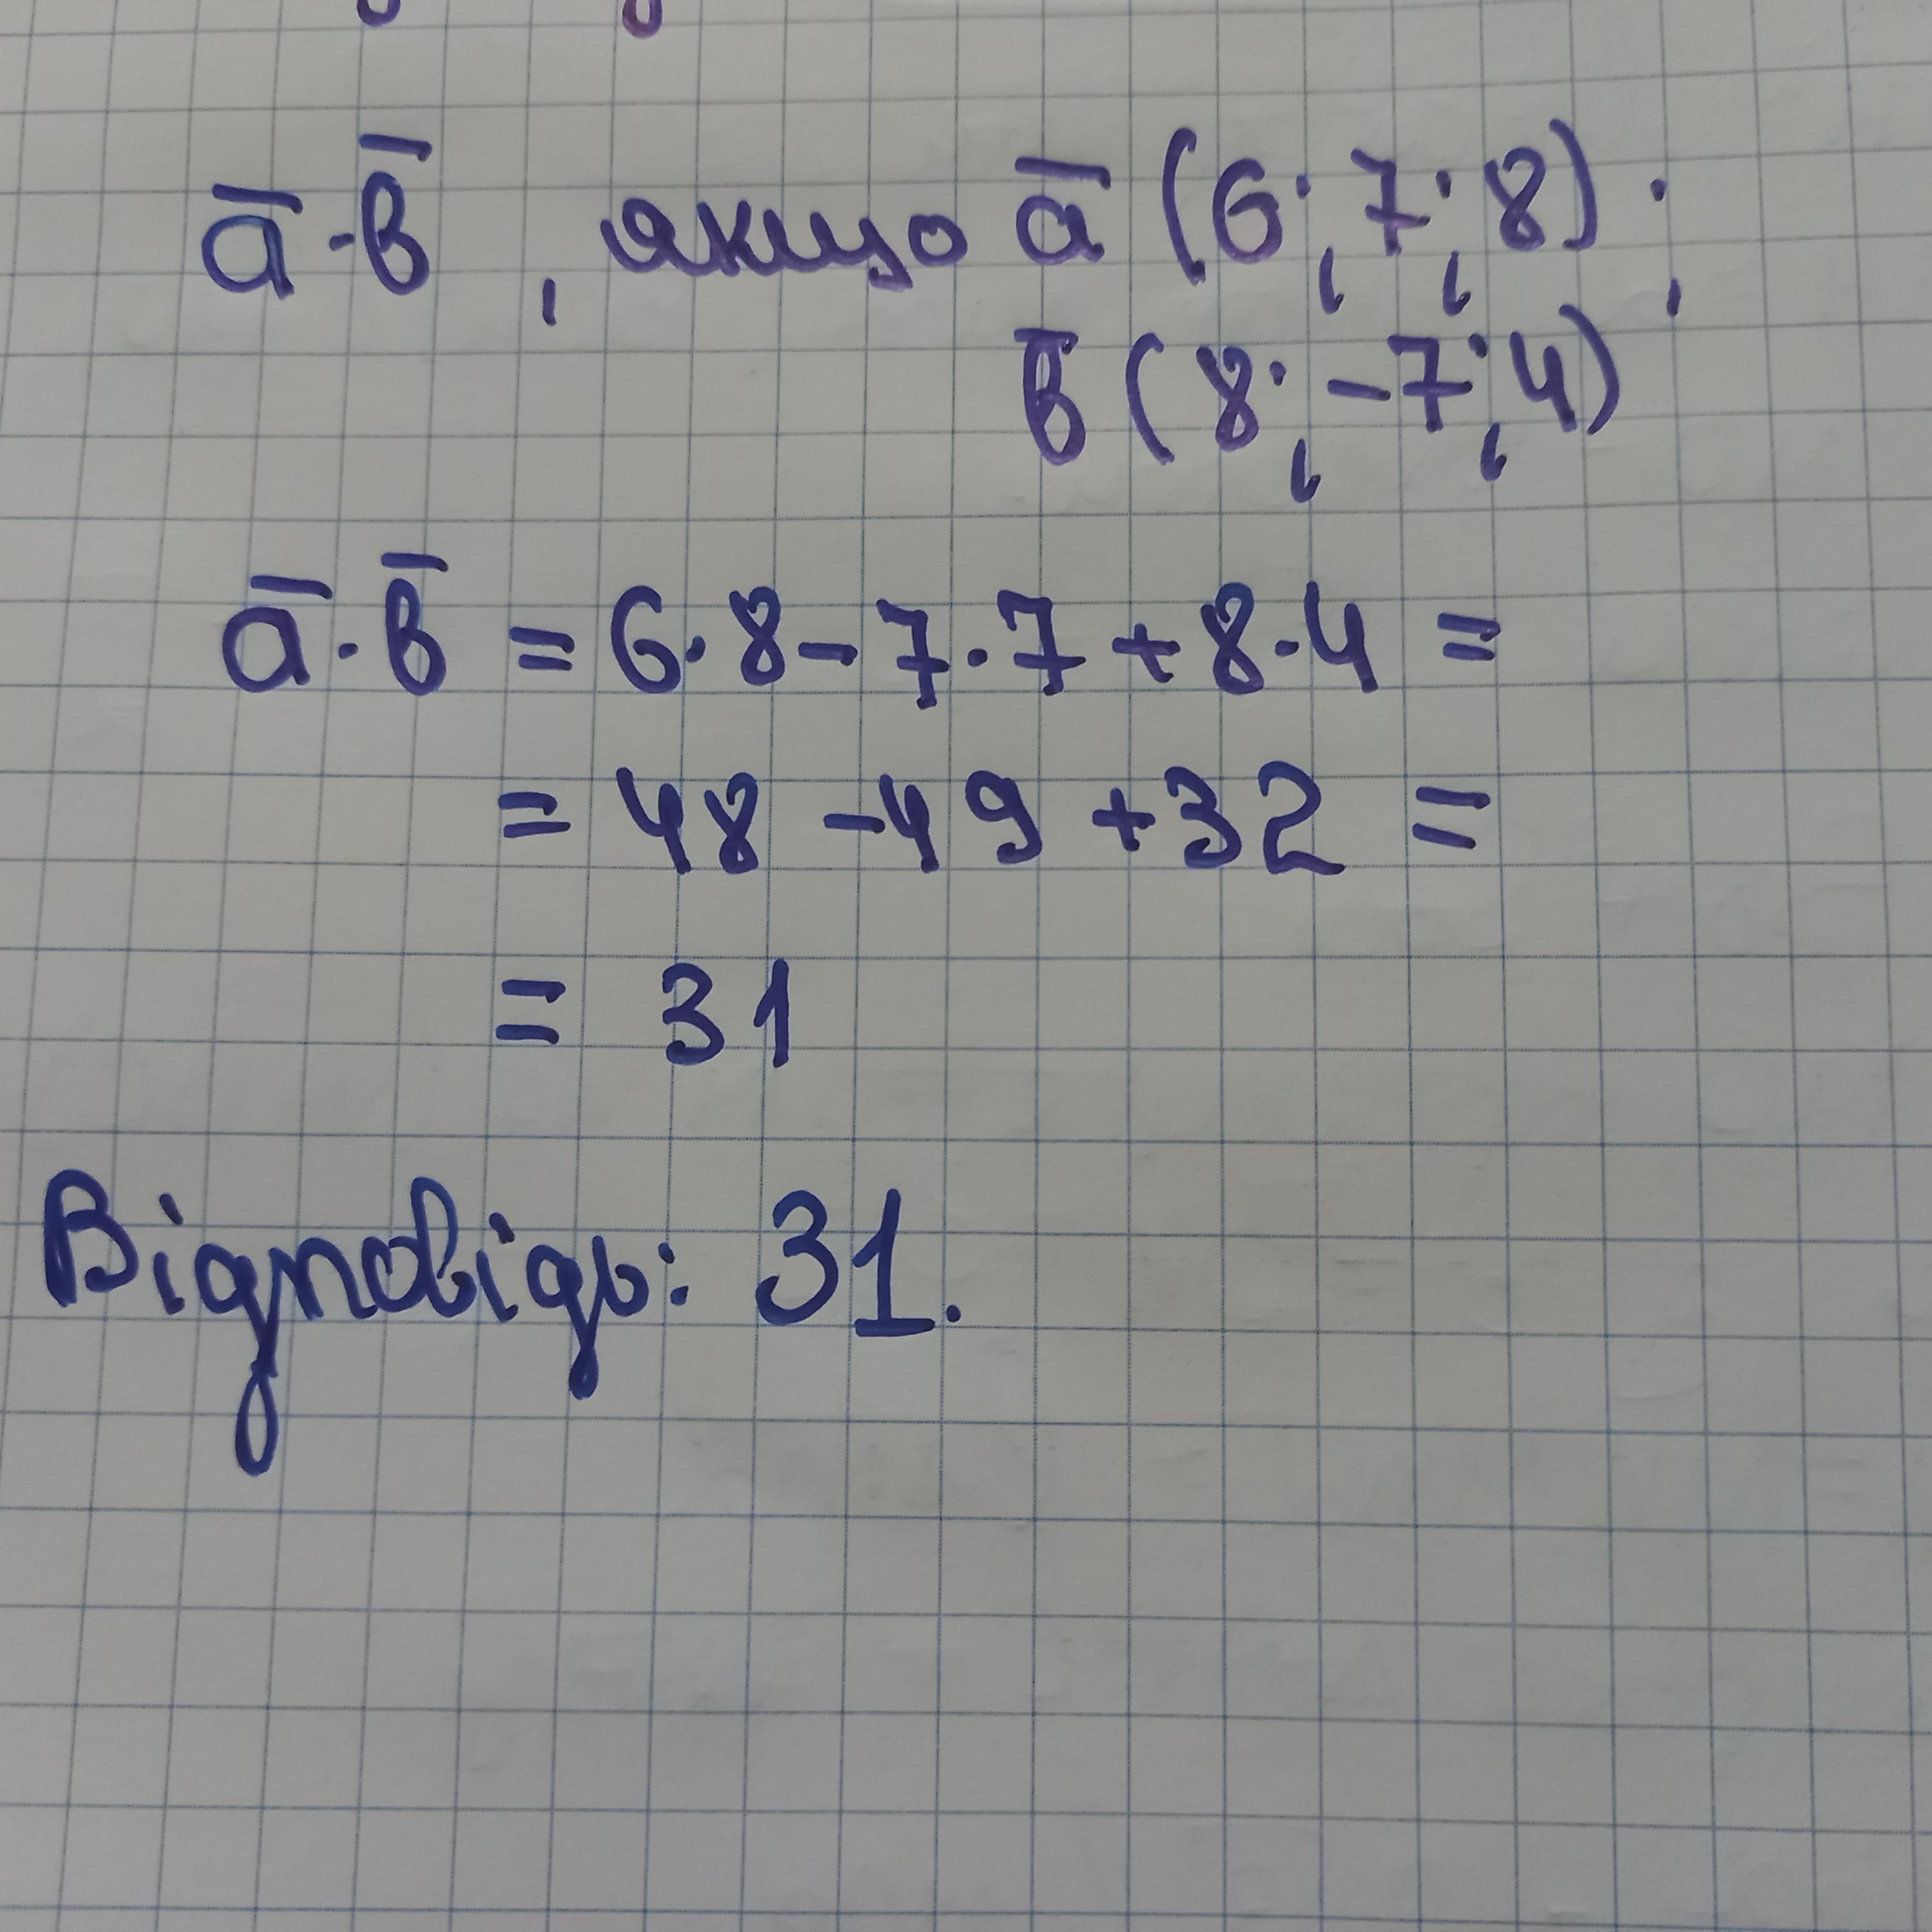 a̅·b̅, якщо a̅ (6; 7; 8);
b̅ (8; -7; 4)
a̅·b̅ = 6·8-7·7+8·4 =
= 48 -49 +32 =
= 31
Відповідь: 31.